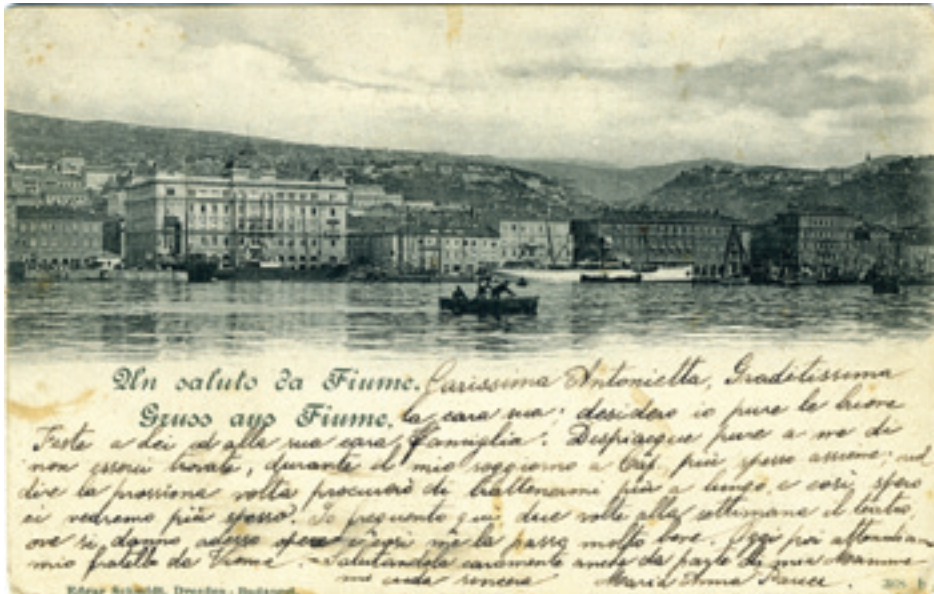 Un saluto da Fiume. Carissima Antonietta, Graditissima
Gruss aus Fiume. la cara sua; desidero io pure le buone
Feste a lei ed alla sua cara famiglia. Dispiacque pure a me di
non esserci trovate, durante il mio soggiorno a più spesso assieme;
dire la prossima volta procurerò di trattenermi più a lungo e così spero
ci vedremo più spesso. Io frequento qui due volte alla settimana il teatro,
ove si danno adesso opere e così me la passo molto bene. Oggi poi
mio fratello da Vienna. Salutandola caramente anche da parte di mia Mamma
me sincera Maria Anna
Edgar Schmidt, Dresden - Budapest.